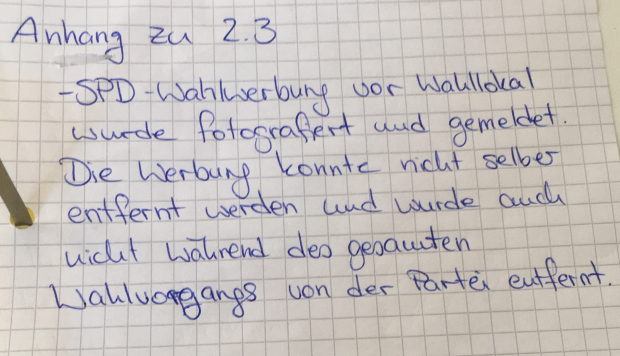 Anhang zu 2.3
-SPD-Wahlwerbung vor Wahllokal
wurde fotografert und gemeldet.
Die Werbung konnte nicht selber
entfernt werden und wurde auch
nicht während des gesamten
Wahlvorgangs von der Partei entfernt.